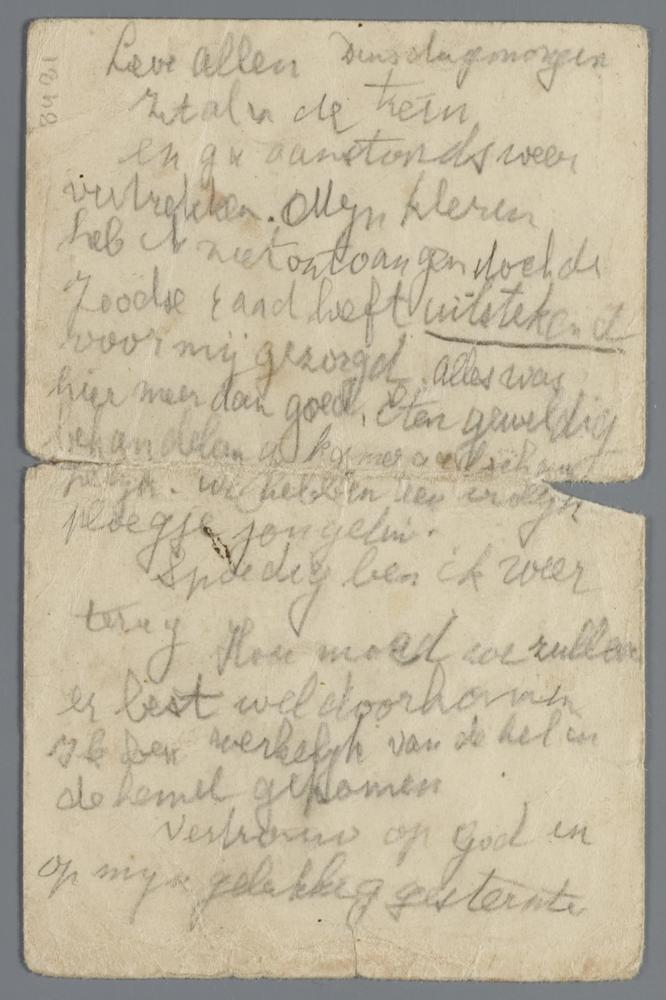 Lieve allen Dinsdagmorgen
Zit al in de trein
en ga aanstonds weer
vertrekken. Mijn kleren
heb ik niet ontvangen doch de
Joodse raad heeft uitstekend
voor mij gezorgd. alles was
hier meer dan goed. Eten geweldig
behandelen en kameraadschap
fijn. we hebben een vrolijk
ploegje jongelui.
Spoedig ben ik weer
terug
Hou moed we zullen
er best wel doorkomen
Ik ben werkelijk van de hel in
de hemel gekomen
Vertrouw op God en
op mijn gelukkig gesternte